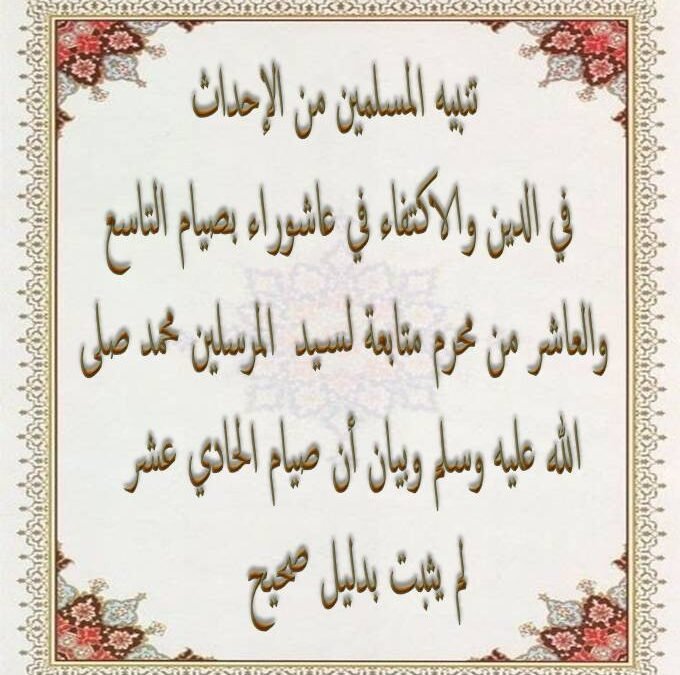 تنبيه المسلمين من الإحداث
في الدين والاكتفاء في عاشوراء بصيام التاسع
والعاشر من محرم متابعة لسيد المرسلين محمد صلى
الله عليه وسلم وبيان أن صيام الحادي عشر
لم يثبت بدليل صحيح